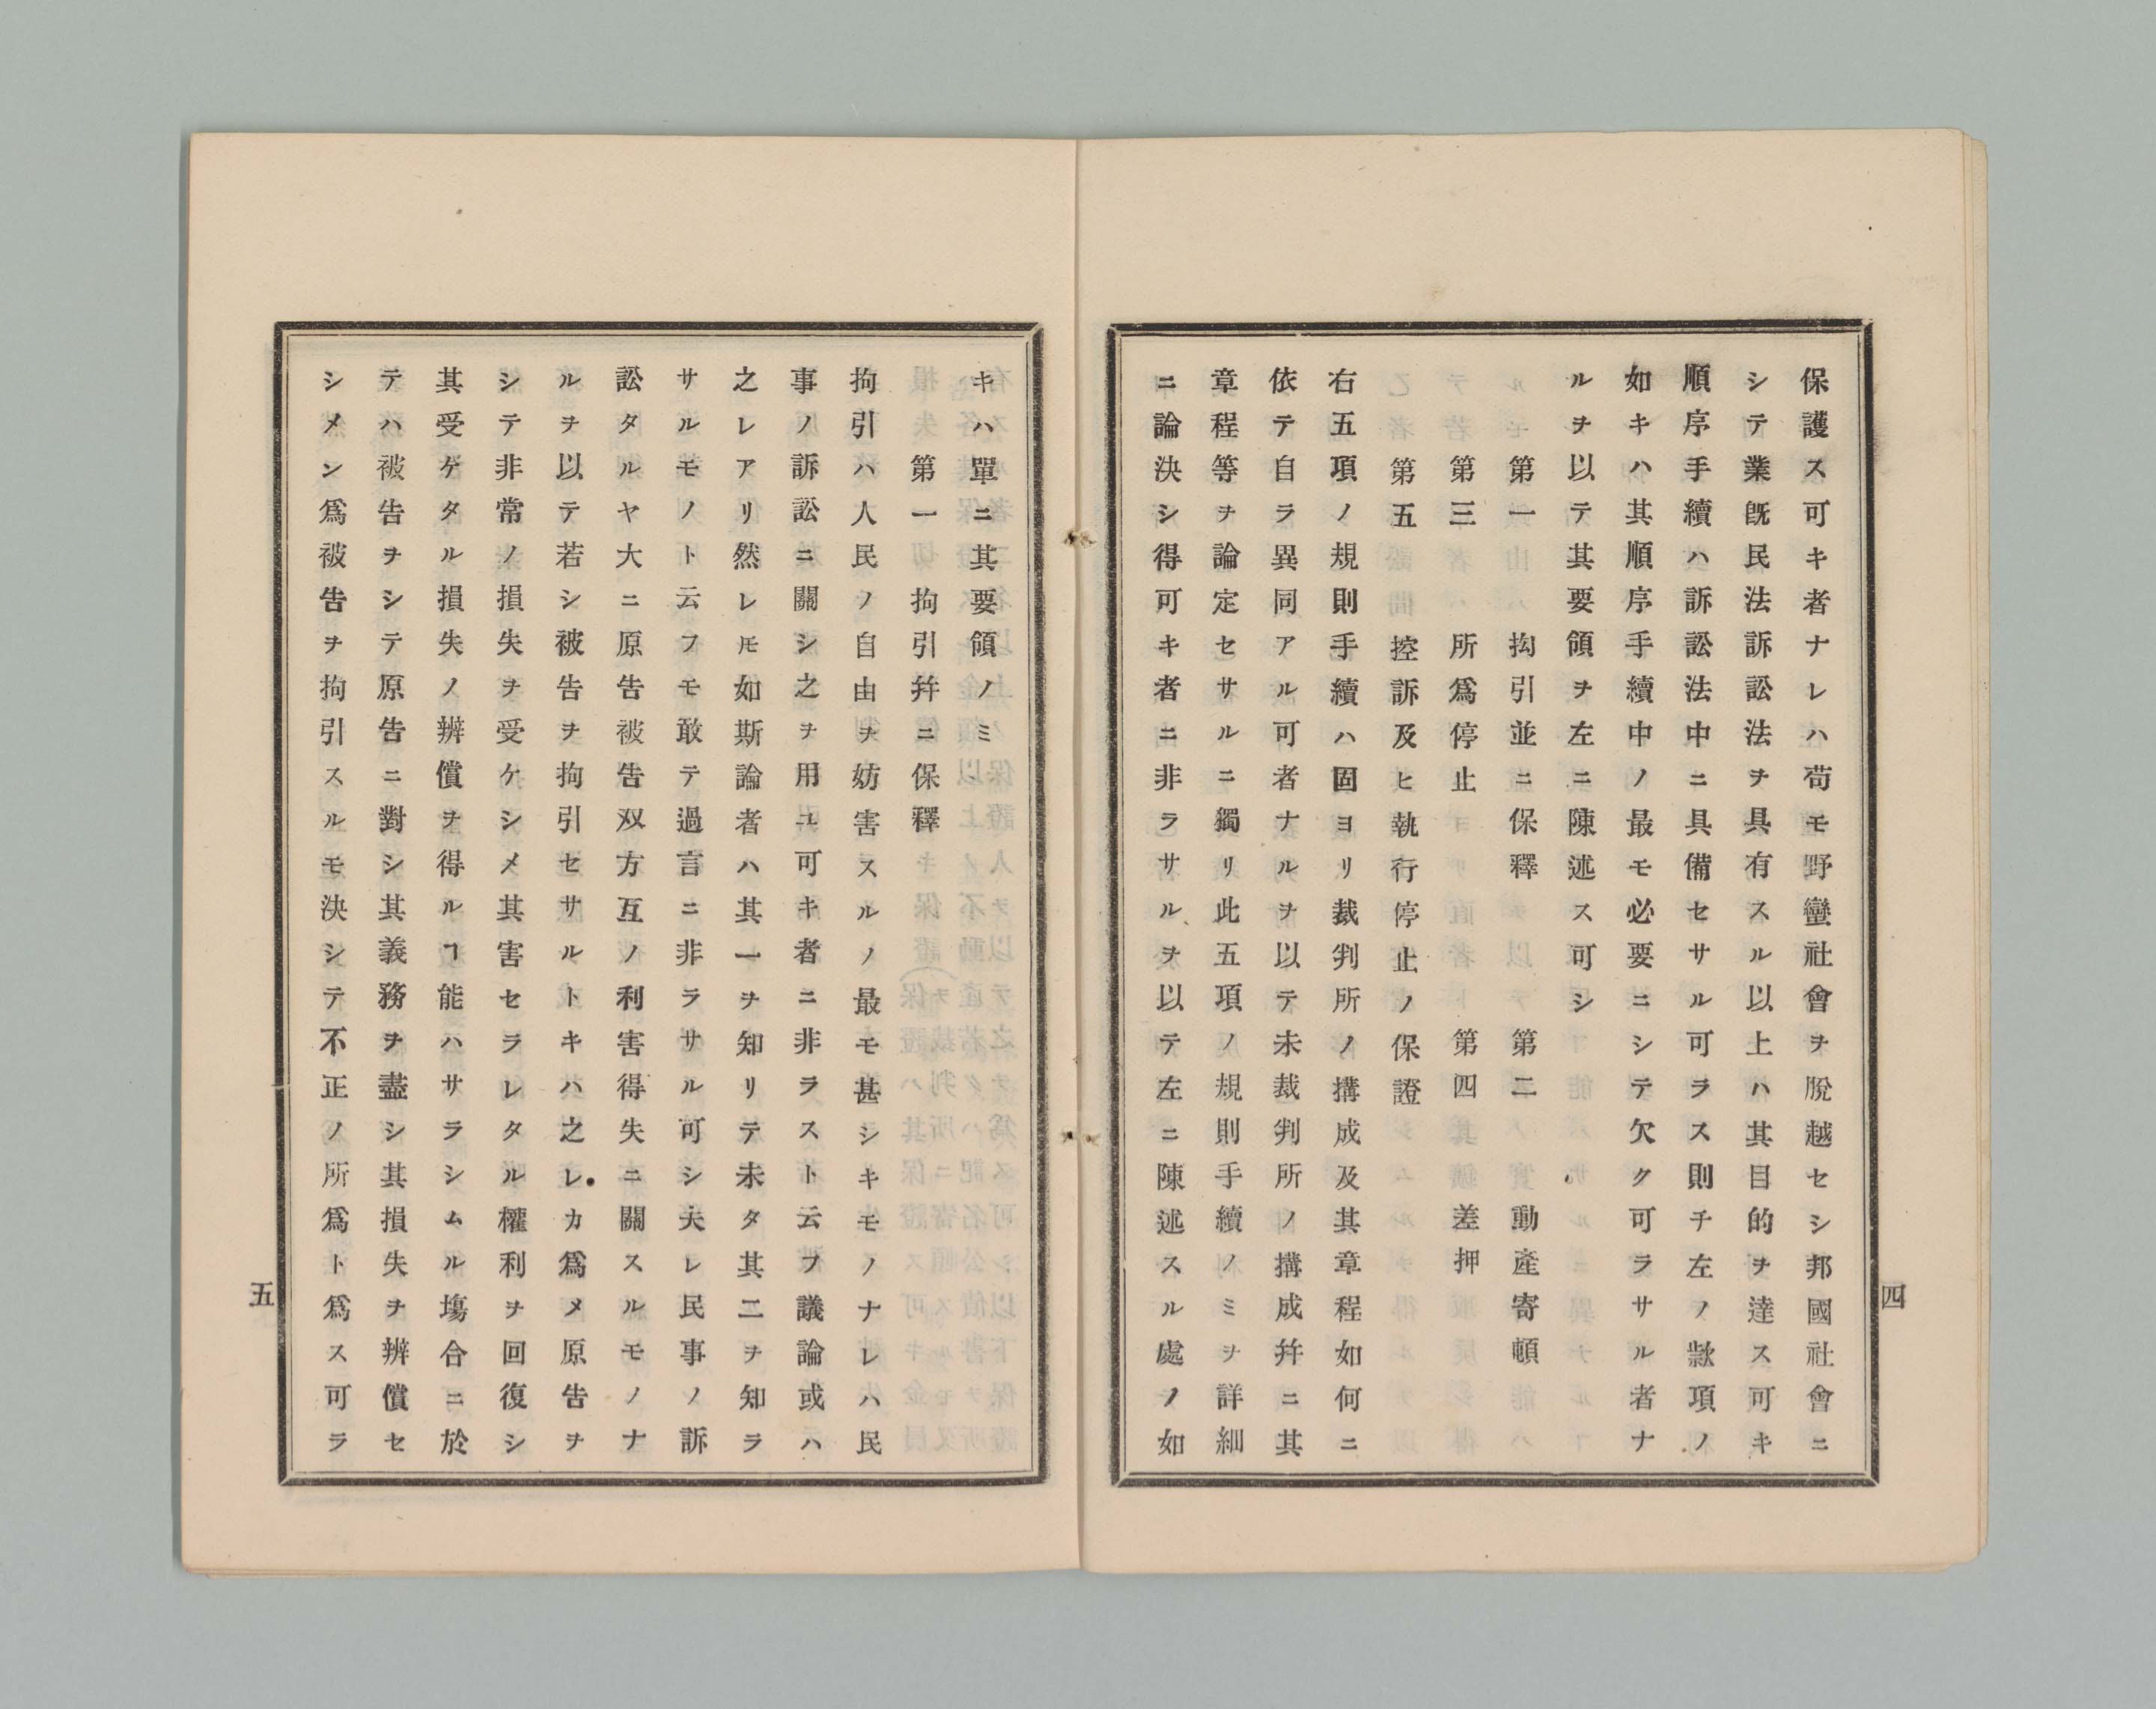 保護ス可キ者ナレハ苟モ野蠻社會ヲ脫越セシ邦國社會ニ
シテ業旣民法訴訟法ヲ具有スル以上ハ其目的ヲ達ス可キ
順序手續ハ訴訟法中ニ具備セサル可ラス則チ左ノ款項ノ
如キハ其順序手續中ノ最モ必要ニシテ欠ク可ラサル者ナ
ルヲ以テ其要領ヲ左ニ陳述ス可シ
第一 拘引並ニ保釋 第二 動產寄頓
第三 所爲停止 第四 差押
第五 控訴及ヒ執行停止ノ保證
右五項ノ規則手續ハ固ヨリ裁判所ノ搆成及其章程如何ニ
依テ自ラ異同アル可者ナルヲ以テ未裁判所ノ搆成幷ニ其
章程等ヲ論定セサルニ獨リ此五項ノ規則手續ノミヲ詳細
ニ論決シ得可キ者ニ非ラサルヲ以テ左ニ陳述スル處ノ如
四
キハ單ニ其要領ノミ
第一 拘引幷ニ保釋
拘引ハ人民ノ自由ヲ妨害スルノ最モ甚シキモノナレハ民
事ノ訴訟ニ關シ之ヲ用ユ可キ者ニ非ラスト云フ議論或ハ
之レアリ然レ𪜈如斯論者ハ其一ヲ知リテ未タ其二ヲ知ラ
サルモノト云フモ敢テ過言ニ非ラサル可シ夫レ民事ノ訴
訟タルヤ大ニ原告被告双方互ノ利害得失ニ關スルモノナ
ルヲ以テ若シ被告ヲ拘引セサルトキハ之レカ爲メ原告ヲ
シテ非常ノ損失ヲ受ケシメ其害セラレタル權利ヲ回復シ
其受ケタル損失ノ辨償ヲ得ルヿ能ハサラシムル塲合ニ於
テハ被告ヲシテ原告ニ對シ其義務ヲ盡シ其損失ヲ辨償セ
シメン爲被告ヲ拘引スルモ決シテ不正ノ所爲ト爲ス可ラ
五